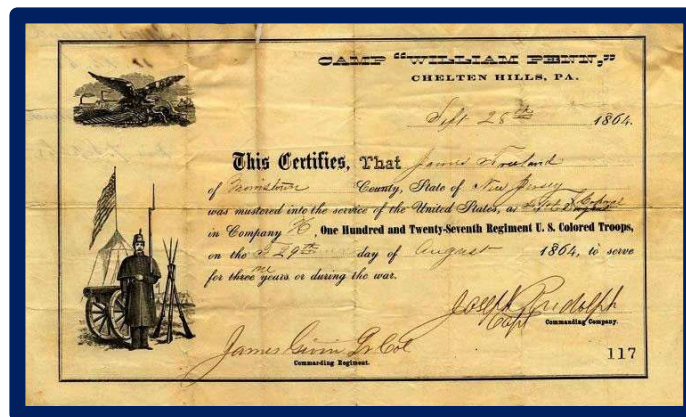 CAMP "WILLIAM PENN,"
CHELTEN HILLS, PA.
Sept 28th 1864.
This Certifies, That James Treeland
of Morristown County, State of New Jersey
was mustered into the service of the United States, as
in Company K, One Hundred and Twenty-Seventh Regiment U. S. Colored Troops,
on the 29th day of August 1864, to serve
for three years or during the war.
Joseph Rudolph
Capt Commanding Company.
James Givin Lt Col
Commanding Regiment.
117